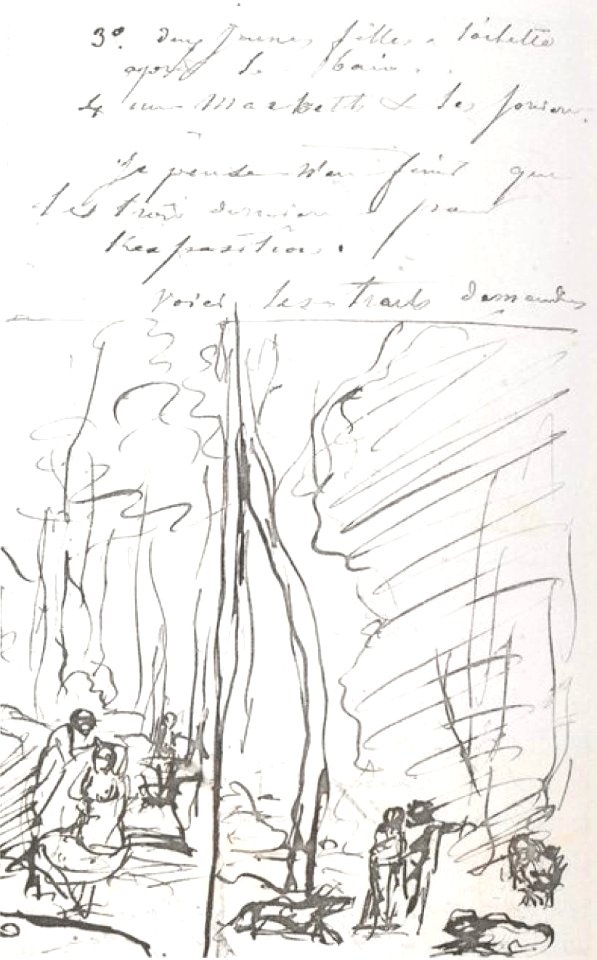 3º. deux jeunes filles a toilette
après le bain.
4 un Macbeth & les
Je pense n'en finir que
les trois derniers pour
l'exposition.
Voici les traits demandés